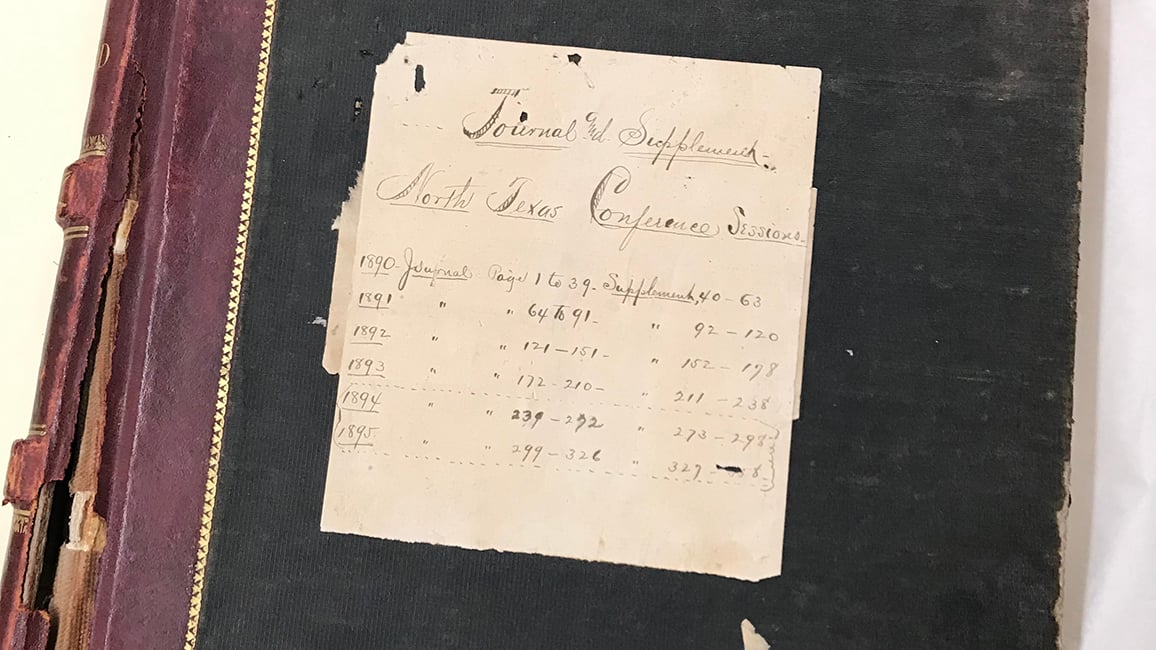 Journal and Supplement-
North Texas Conference Sessions-
1890- Journal Page 1 to 39- Supplement, 40-63
1891 " " 64 to 91- " 92-120
1892 " " 121-151- " 152-178
1893 " " 172-210- " 211-238
1894 " " 239-272 " 273-298
1895 " " 299-326 " 327-